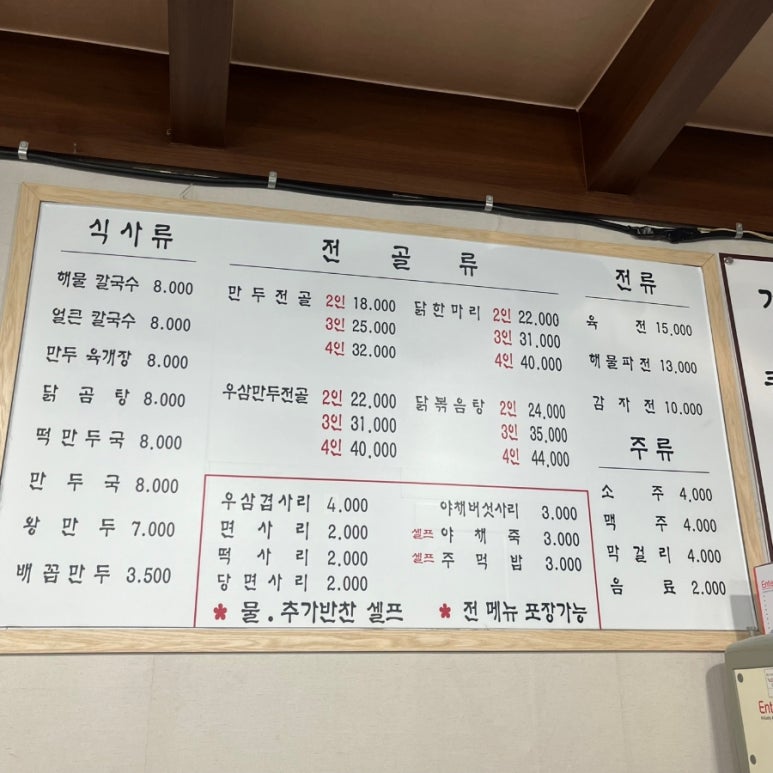 식사류
해물 칼국수 8.000
얼큰 칼국수 8.000
만두 육개장 8.000
닭곰탕 8.000
떡만두국 8.000
만두국 8.000
왕만두 7.000
배꼽만두 3.500
전골류
만두전골 2인 18.000
3인 25.000
4인 32.000
우삼만두전골 2인 22.000
3인 31.000
4인 40.000
닭한마리 2인 22.000
3인 31.000
4인 40.000
닭볶음탕 2인 24.000
3인 35.000
4인 44.000
우삼겹사리 4.000
면사리 2.000
떡사리 2.000
당면사리 2.000
야채버섯사리 3.000
셀프 야채죽 3.000
셀프 주먹밥 3.000
* 물.추가반찬 셀프 * 전 메뉴 포장가능
전류
육전 15.000
해물파전 13.000
감자전 10.000
주류
소주 4.000
맥주 4.000
막걸리 4.000
음료 2.000